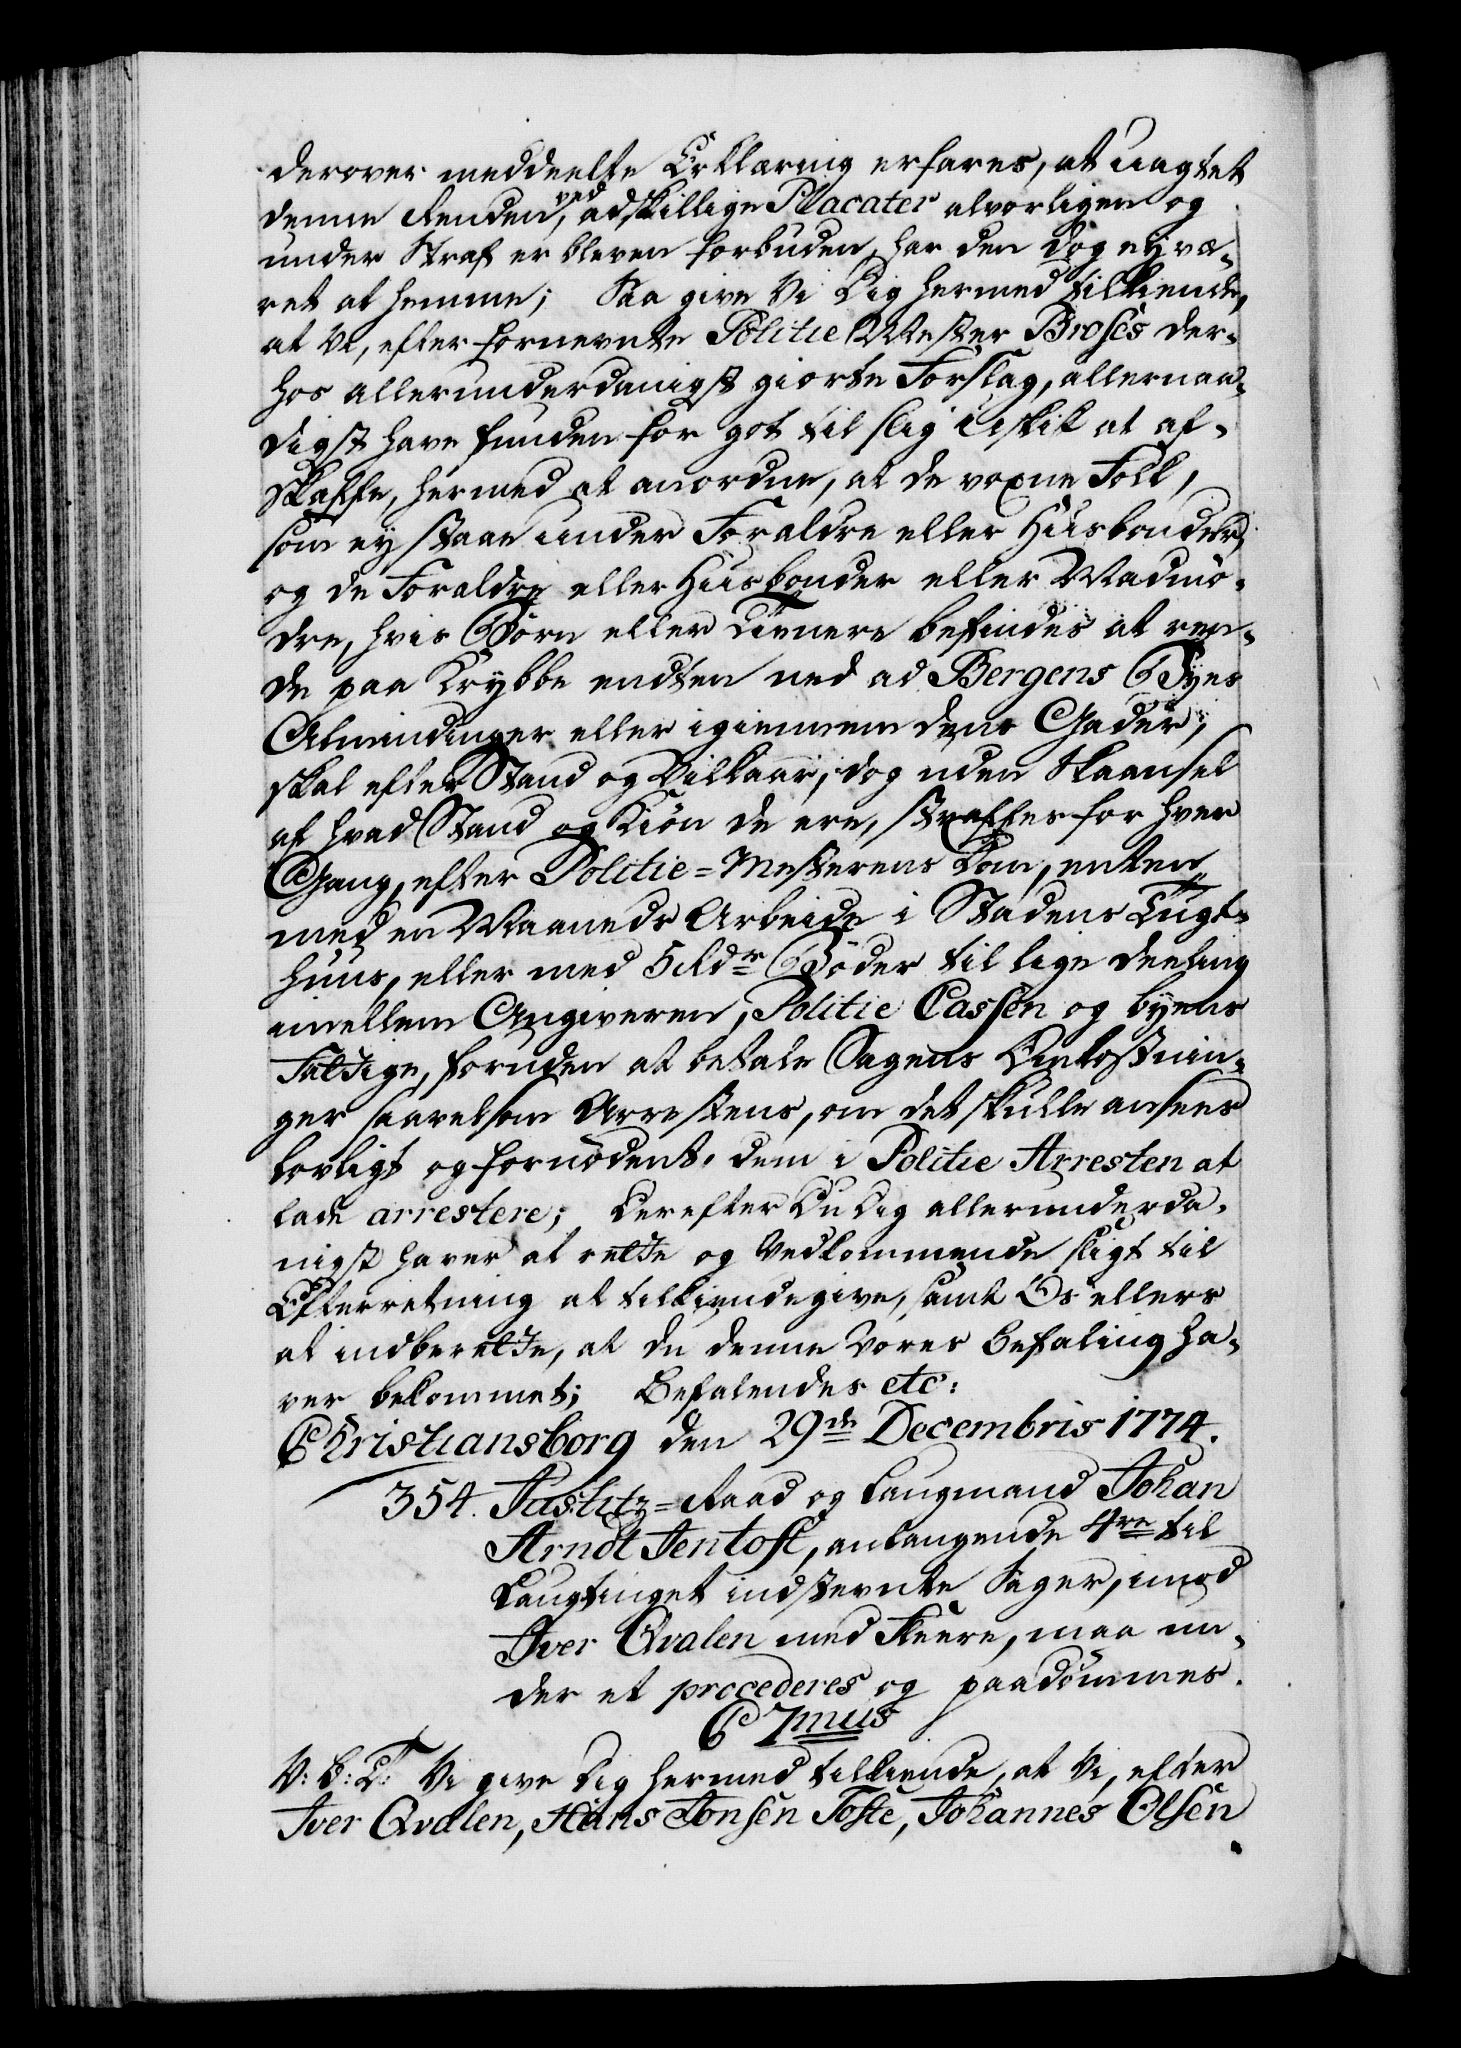 derover meddeelte Erklæring erfares, at uagtet
denne Renden, ved adskillige Placater alvorligen og
under Straf er bleven forbuden, har den dog ey væ-
ret at hemme; Saa give Vi Dig hermed tilkiende,
at Vi, efter fornevnte Politie Mester Broses der-
hos allerunderdanigst giorte Forslag, allernaa-
digst have funden for got til slig Uskik at af-
skaffe, hermed at anordne, at de voxne Folk,
som ey staae under Forældre eller Huusbonder,
og de Forældre eller Huusbonder eller Madmo-
dre, hvis Børn eller Tienere befindes at ren-
de paa Krybbe endten ned ad Bergens Byes
Almindinger eller igiennem dens Gader,
skal efter Stand og Vilkaar, dog uden Skaansel
af hvad Stand og Kiøn de ere, straffes for hver
Gang, efter Politie=Mesterens Dom, enten
med en Maaneds Arbeide i Stadens Tugt-
huus, eller med 5 Rdr Bøder til lige deeling
imellem Angiveren, Politie Cassen og byens
Fattige, foruden at betale Sagens Omkostnin-
ger saavelsom Arrestens, om det skulle ansees
lovligt og fornødent, dem i Politie Arresten at
lade arrestere; Derefter Du Dig allerunderda-
nigst haver at rette og Vedkommende sligt til
Efterretning at tilkiendegive, samt Os ellers
at indberette, at du denne Vores Befaling ha-
ver bekommet; Befalendes etc:
Christiansborg den 29de Decembris 1774.
354. Justitz=Raad og Laugmand Johan
Arndt Jentoft, anlangende 4re til
Laugtinget indstevnte Sager, imod
Iver Qvalen med Fleere, maa un-
der et procederes og paadømmes.
C 7mus
V: G: T: Vi give Dig hermed tilkiende, at Vi, efter
Iver Qvalen, Hans Jonsen Toste, Johannes Olsen